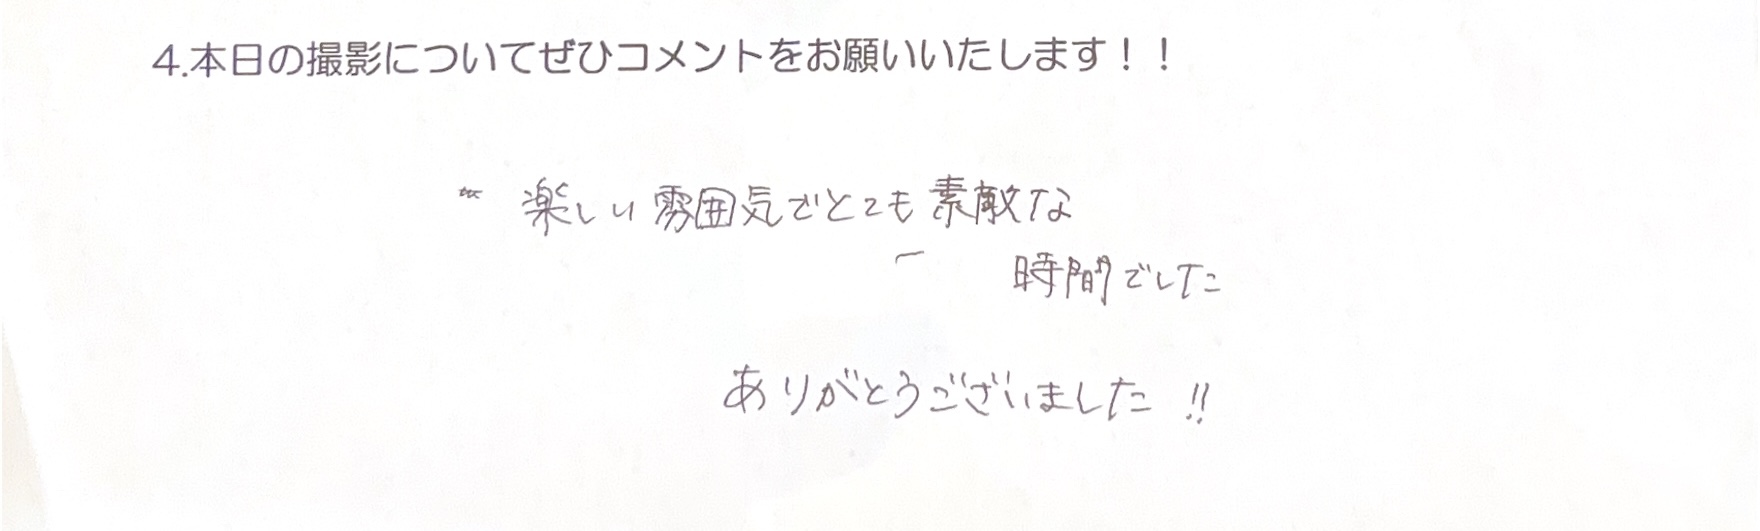 4.本日の撮影についてぜひコメントをお願いいたします！！
楽しい雰囲気でとても素敵な
時間でした
ありがとうございました!!